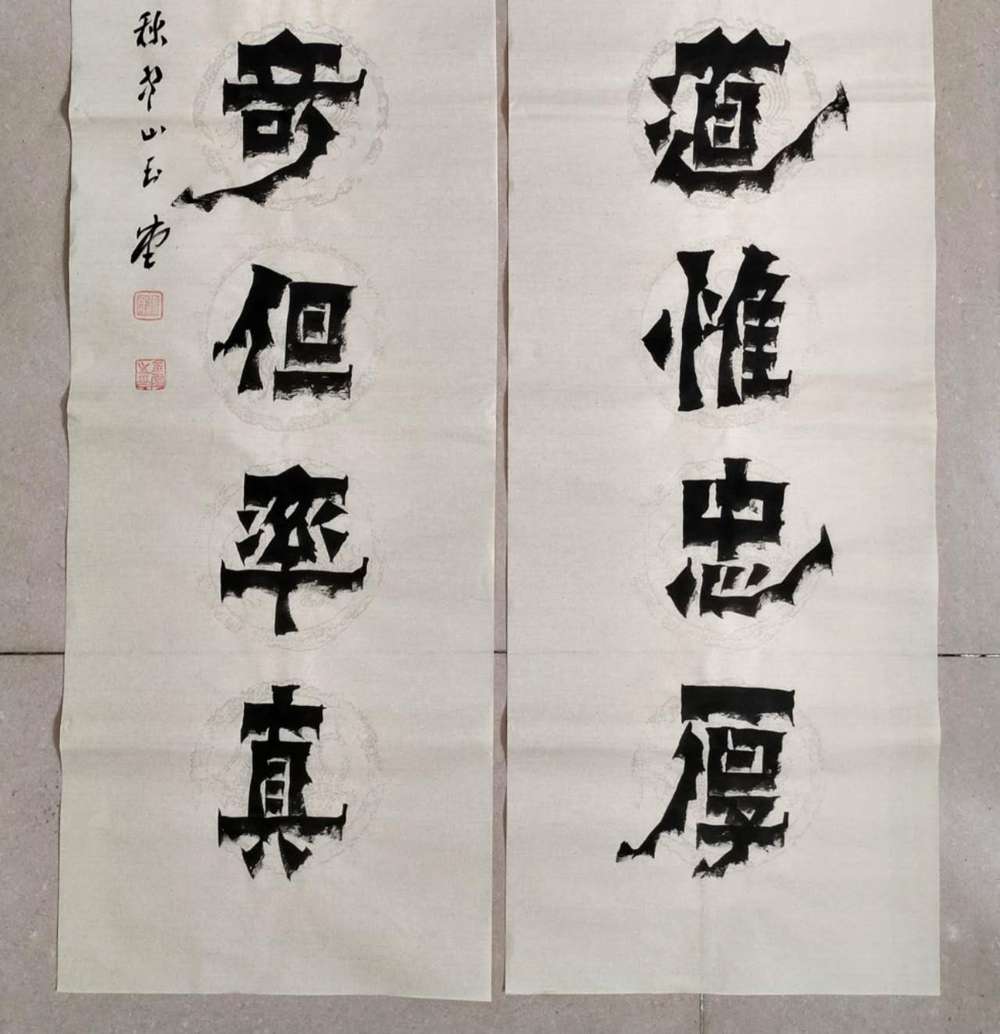 道惟忠厚
奇但率真
秋山玉堂